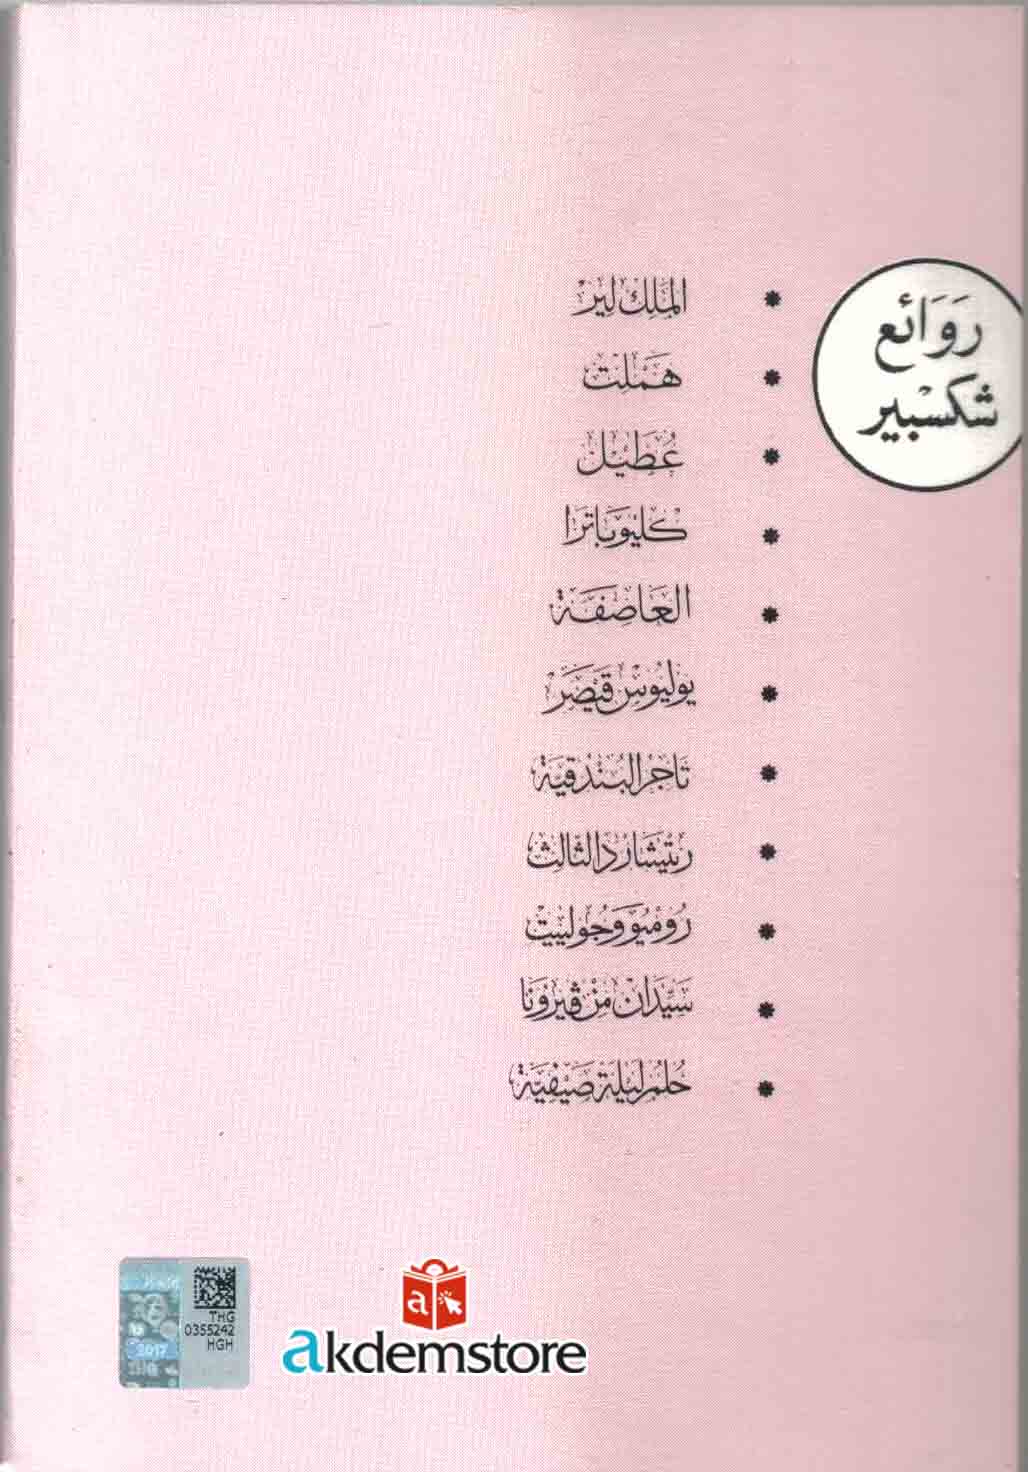 رَوَائع
شكسبير
* المَلِك لِير
* هَمَلِت
* عُطَيْل
* كليوبَاترَا
* العَاصِفَة
* يوليُوس قَيْصَر
* تَاجرُ البُندُقيَة
* ريتشارد الثالِث
* رُوميُو وَجُولييت
* سَيِّدَان مِنْ ڤيرونَا
* حُلم ليلة صَيفيَّة
THG
0355242
HGH
2017
a
akdemstore